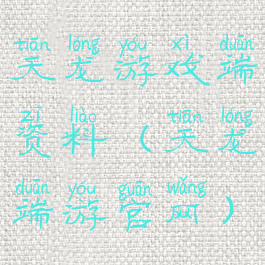 tiān lóng yóu xì duān
天龙游戏端
zī liào tiān lóng
资料(天龙
duān yóu guān wǎng
端游官网)